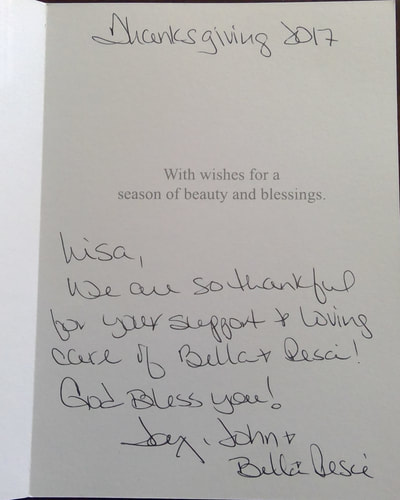 Thanksgiving 2017
With wishes for a
season of beauty and blessings.
Lisa,
We are so thankful
for your support & loving
care of Bella & Desci!
God Bless you!
John &
Bella Desci